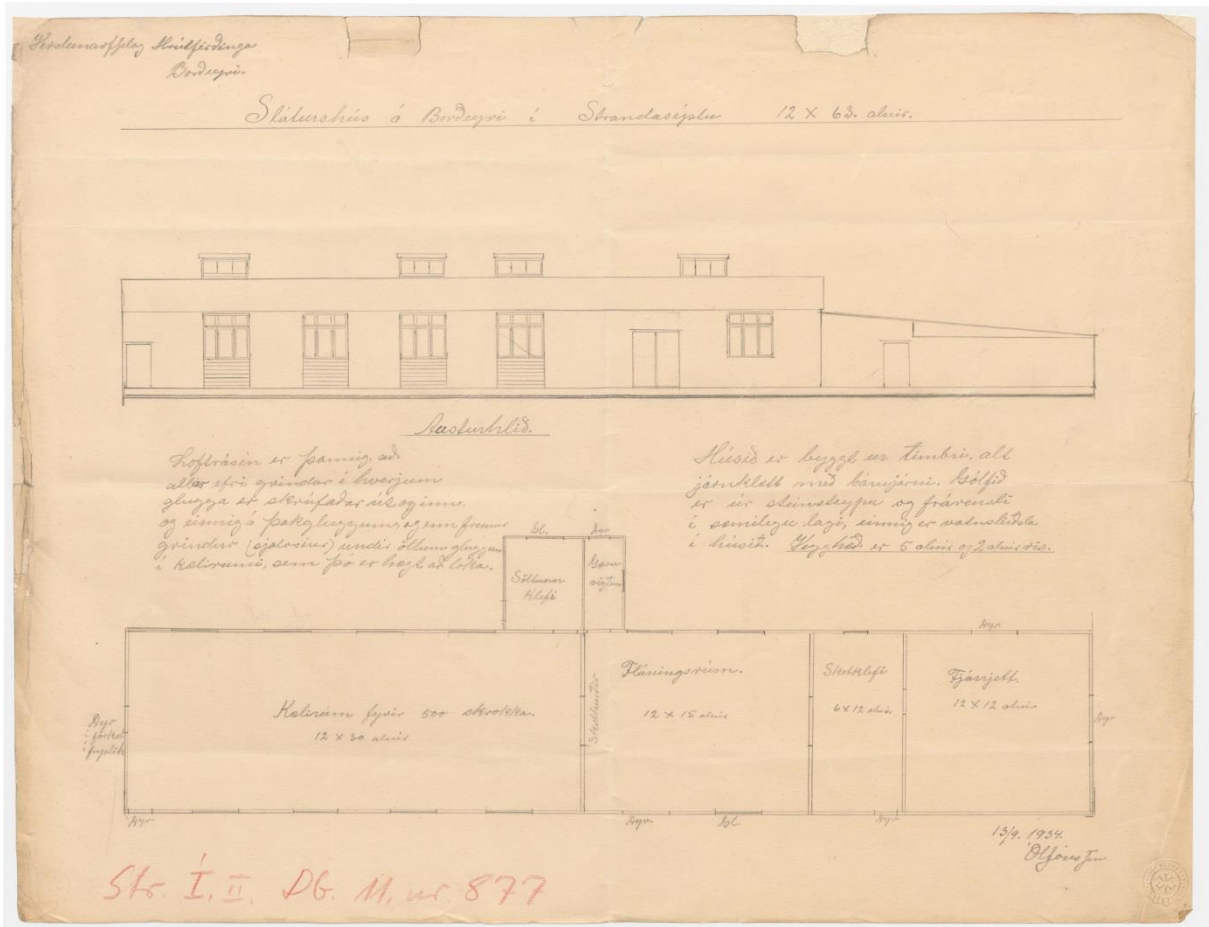 Verslunarfjelag Hrútfirðinga
Borðeyri.
Sláturshús á Borðeyri í Strandasýslu 12 X 63. alnir.
Austurhlið.
Loftrásin er þannig, að
allar efri grindar í hverjum
glugga er skrúfaðar út og inn.
og einnig á þakgluggum, og enn fremur
grindur undir öllum gluggum
í kælirúmi, sem þó er hægt að loka.
Húsið er byggt úr timbri, alt
járnklætt með bárujárni. Gólfið
er úr steinsteypu og frárensli
í sæmilegu lagi, einnig er vatnsleiðsla
í húsið. Vegghæð er 5 alnir og 2 alnir ris.
Gl. Dyr
Söltunar
klefi
Dyr
Kælirúm fyrir 500 skrokka.
12 X 30 alnir
Fláningsrúm.
12 X 15 alnir
Skotklefi
6 X 12 alnir
Fjárrjett
12 X 12 alnir
Dyr
Dyr
Dyr
Dyr
Gl.
Dyr
13/9. 1934.
Str. I, II. DG. 11, nr. 877